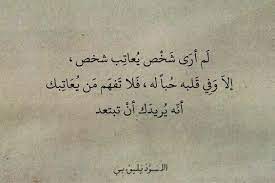 لَم أرَى شَخْص يُعاتِب شخص ،
إلاَ وَفِي قَلبه حُباً له ، فَلا تَفهَم مَن يُعَاتِبك
أنّه يُريدَك أنْ تبتعد